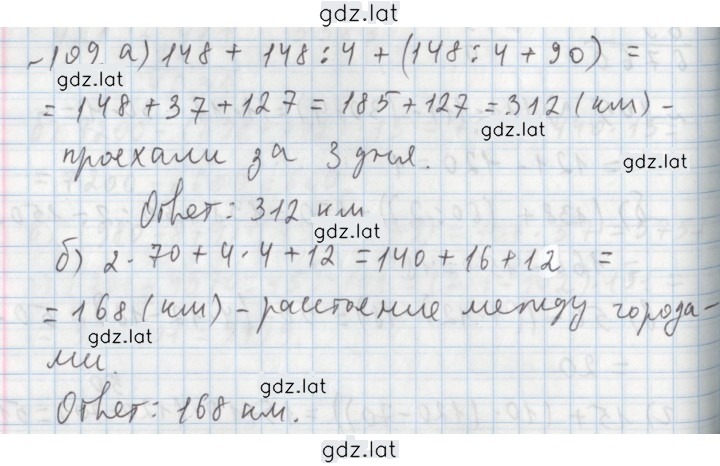 gdz.lat
№109 а) 148 + 148 : 4 + (148 : 4 + 90) =
gdz.lat
= 148 + 37 + 127 = 185 + 127 = 312 (км) -
gdz.lat
проехали за 3 дня.
gdz.lat
Ответ: 312 км
gdz.lat
б) 2 · 70 + 4 · 4 + 12 = 140 + 16 + 12 =
= 168 (км) - расстояние между города-
gdz.lat
ми.
gdz.lat
Ответ: 168 км.
gdz.lat